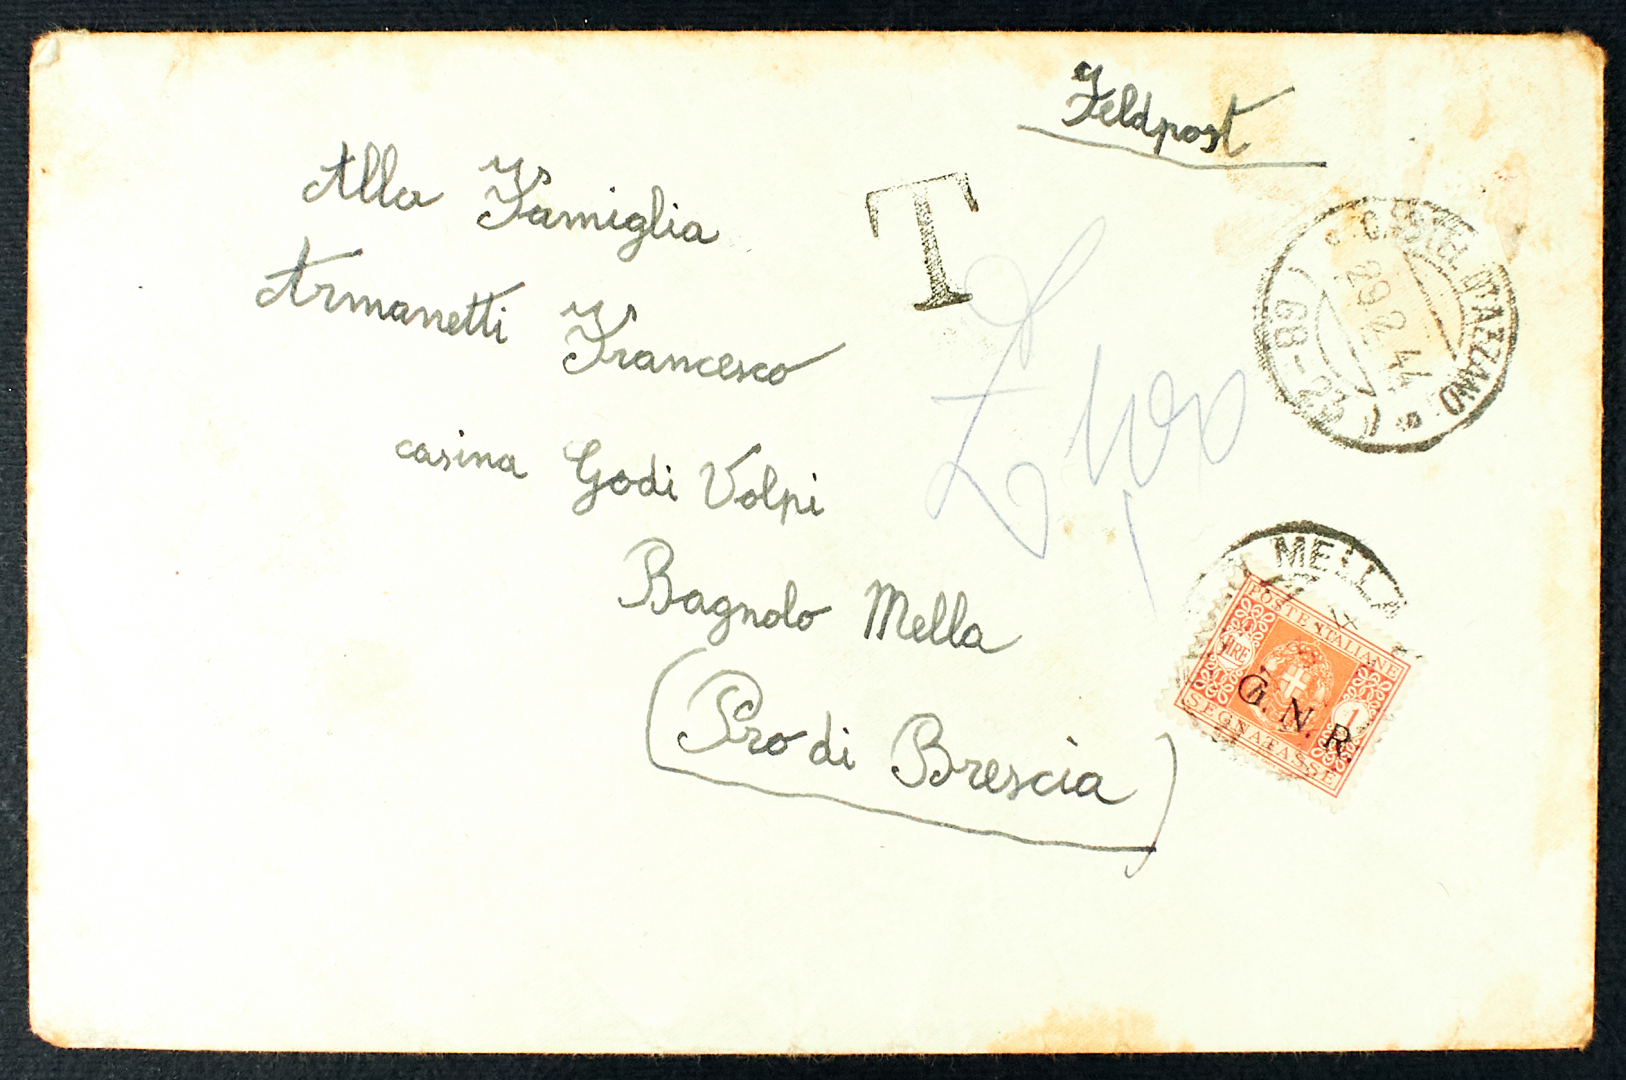 Feldpost
Alla Famiglia
T
Armanetti Francesco
casina Godi Volpi
Bagnolo Mella
(Pro di Brescia)
CASTEL D'AZZANO
29.2.44
MELLA
POSTE ITALIANE
LIRE
1
G.N.R.
SEGNATASSE